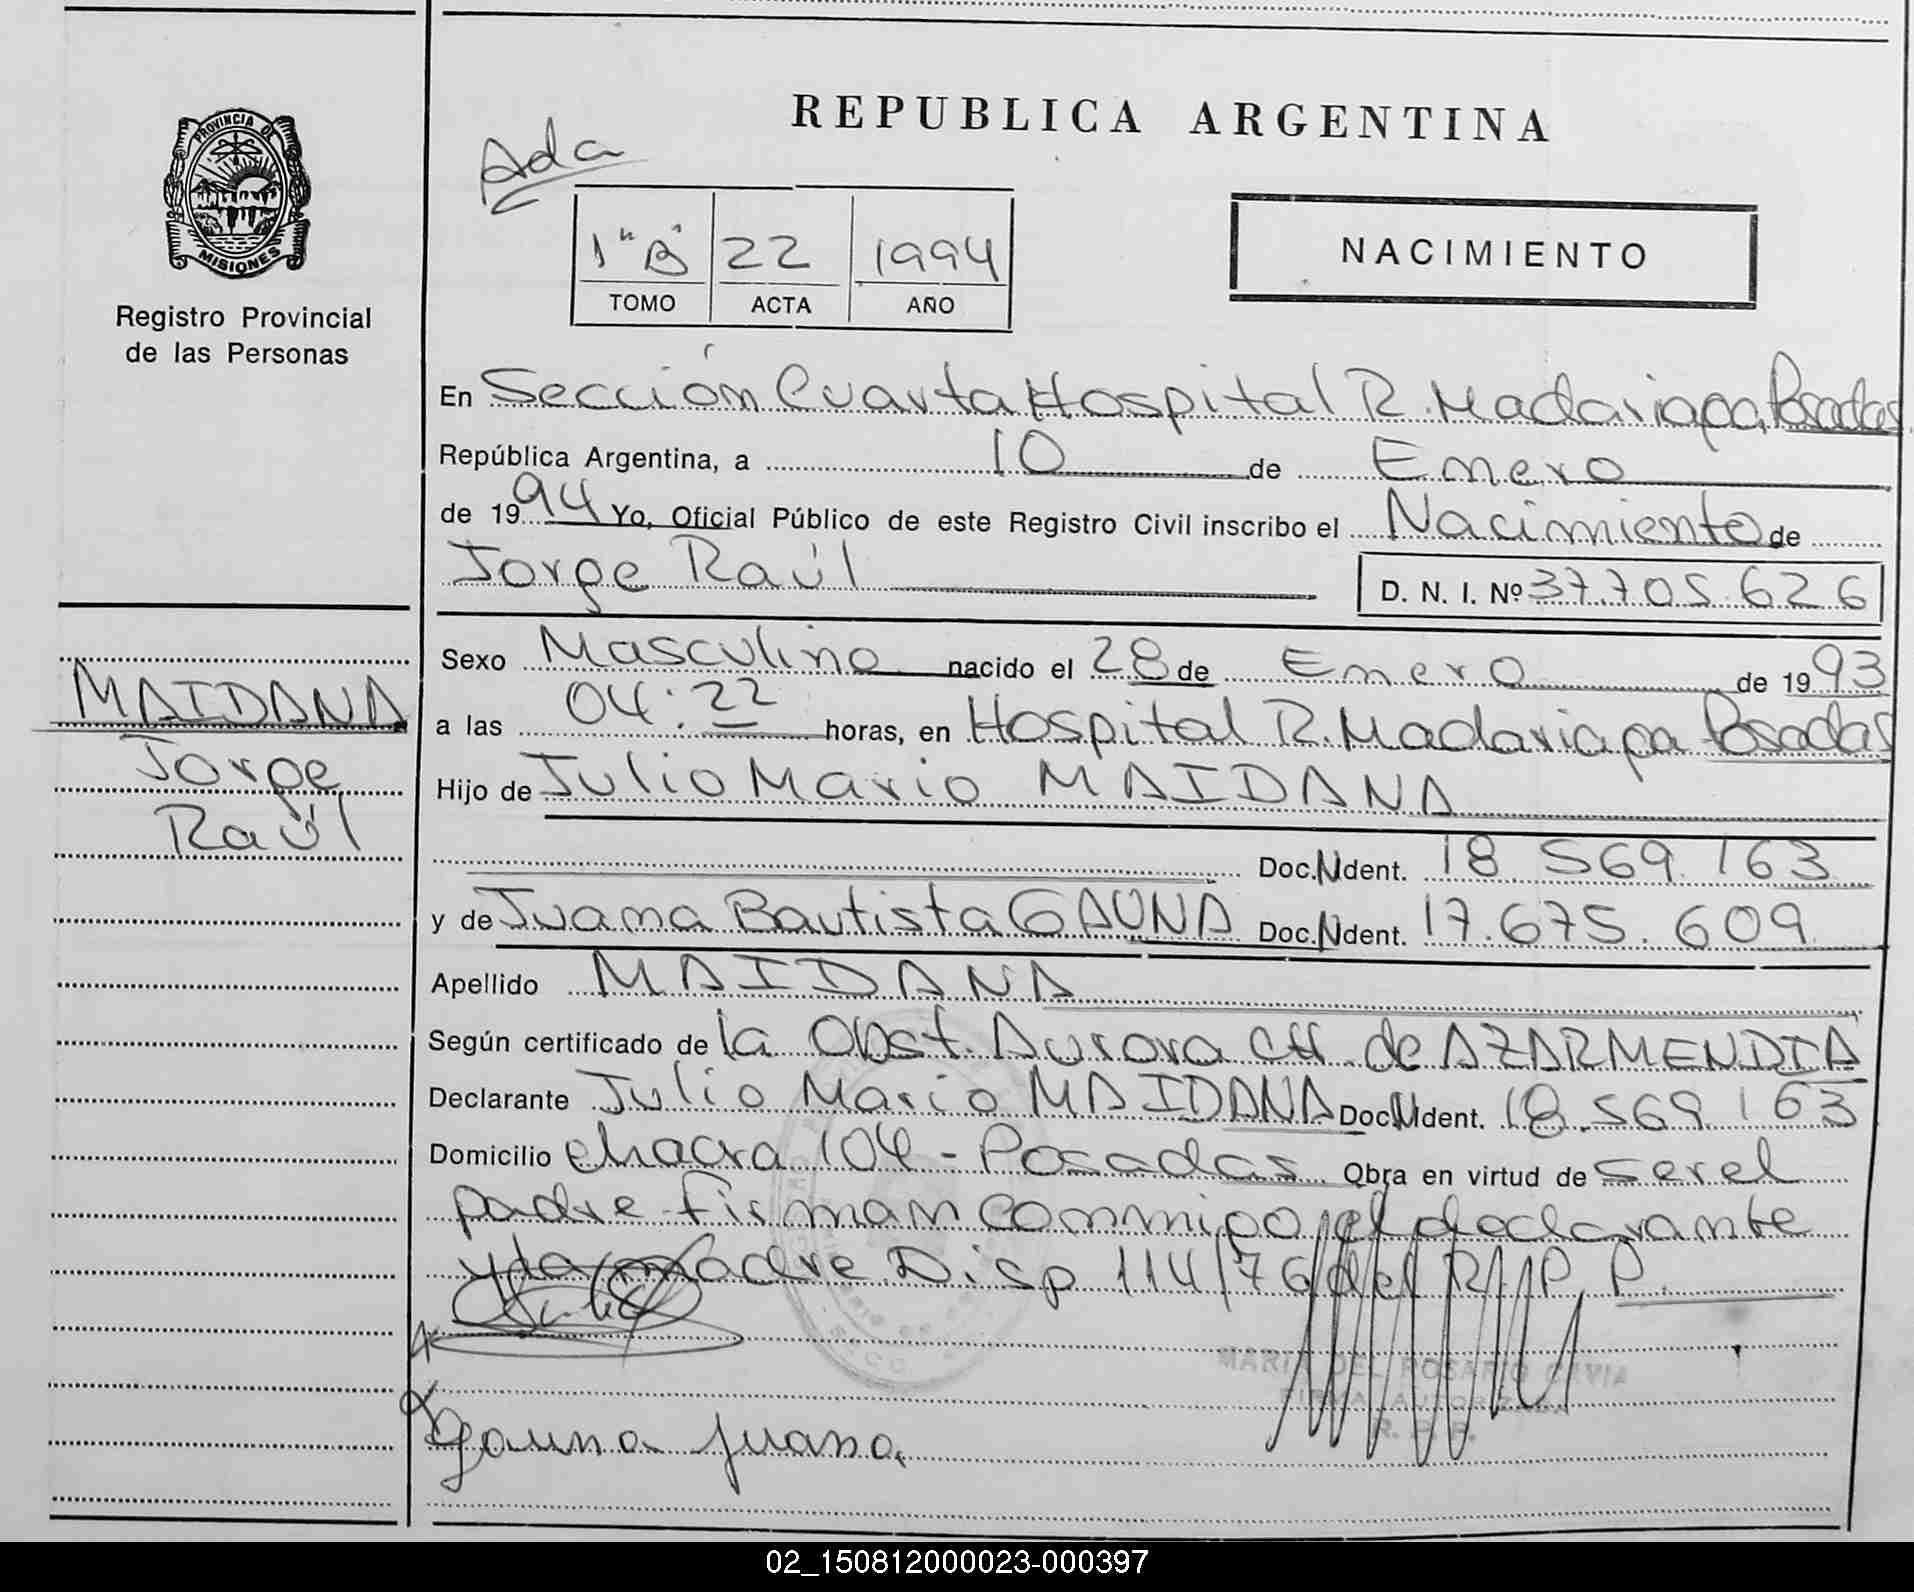 PROVINCIA DE
MISIONES
Registro Provincial
de las Personas
MAIDANA
Jorge
Raúl
REPUBLICA ARGENTINA
Ada
1 "B" 22 1994
TOMO ACTA AÑO
NACIMIENTO
En Sección Cuarta Hospital R. Madariaga, Posadas
República Argentina, a 10 de Enero
de 1994 Yo, Oficial Público de este Registro Civil inscribo el Nacimiento de
Jorge Raúl D. N. I. Nº 37.705.626
Sexo Masculino nacido el 28 de Enero de 1993
a las 04:22 horas, en Hospital R. Madariaga Posadas
Hijo de Julio Mario MAIDANA
Doc. N Ident. 18.569.163
y de Juana Bautista GAUNA Doc. N Ident. 17.675.609
Apellido MAIDANA
Según certificado de la Obst. Aurora de AZARMENDIA
Declarante Julio Mario MAIDANA Doc. N Ident. 18.569.163
Domicilio chacra 104 - Posadas Obra en virtud de ser el
padre firman conmigo el declarante
y la madre Disp 114/76 del R. P. P.
MARIA DEL ROSARIO CAVIA
FIRMA AUTORIZADA
R. P. P.
Gauna Juana
02_150812000023-000397